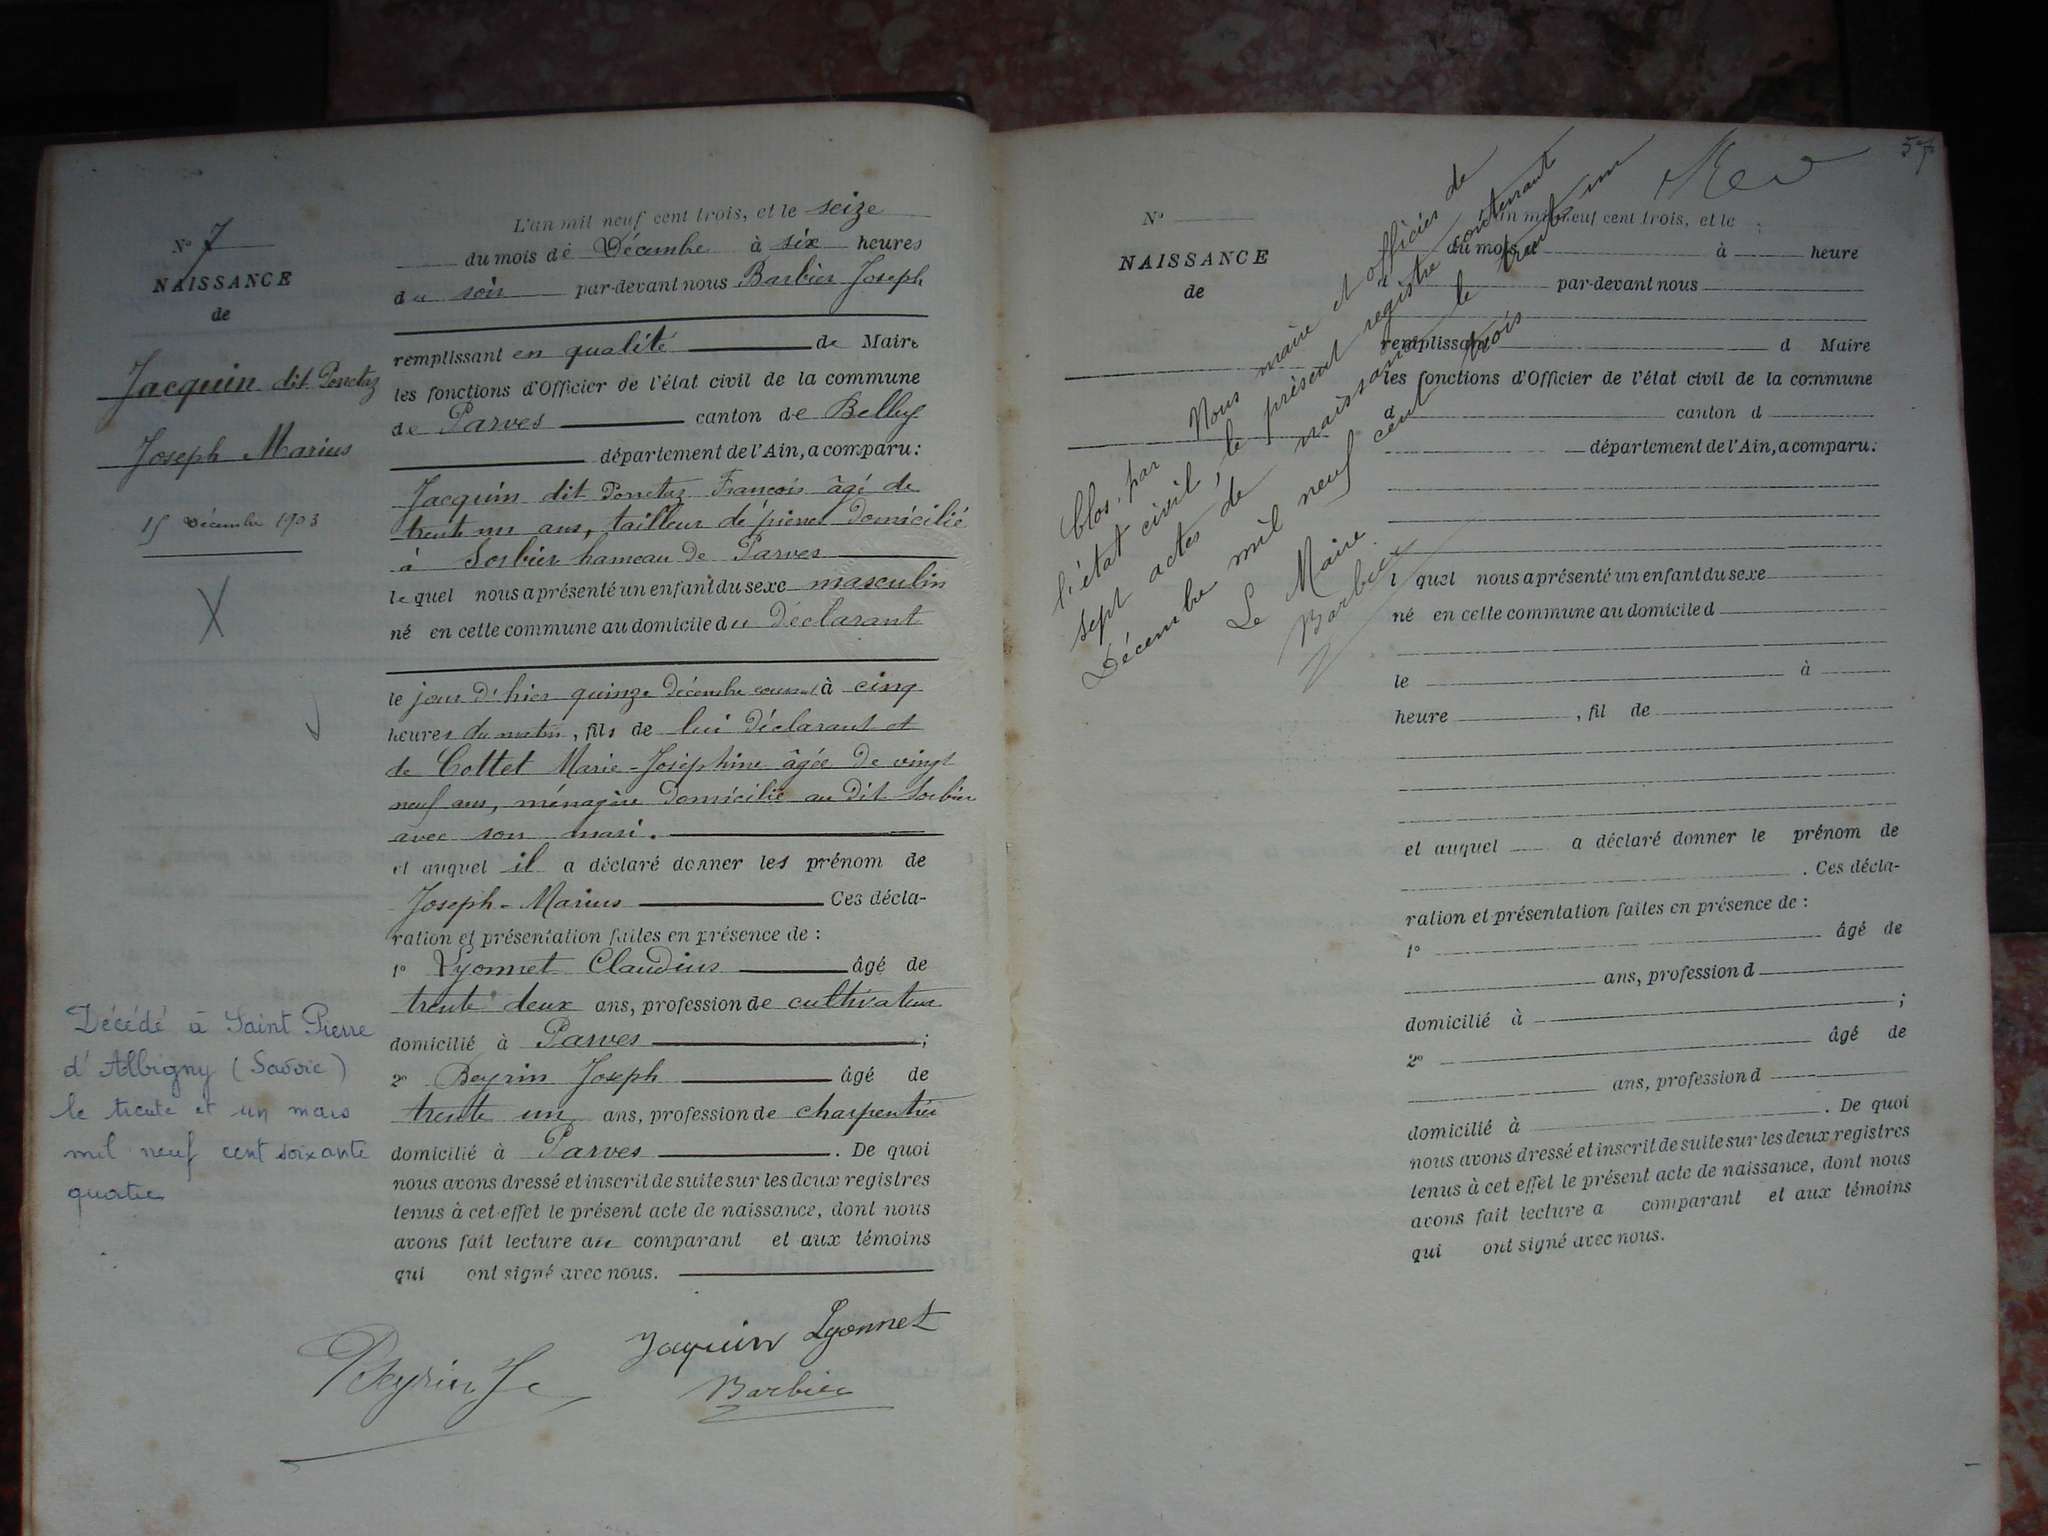 N° 7
NAISSANCE
de
Jacquin dit Perretaz
Joseph Marius
15 Décembre 1903
X
Décédé à Saint Pierre
d'Albigny (Savoie)
le trente et un mars
mil neuf cent soixante
quatre
L'an mil neuf cent trois, et le seize
du mois de Décembre à six heures
du soir par-devant nous Barbier Joseph
remplissant en qualité de Maire
les fonctions d'Officier de l'état civil de la commune
de Parves canton de Belley
département de l'Ain, a comparu:
Jacquin dit Perretaz François âgé de
trente un ans, tailleur de pierres domicilié
à Sorbier hameau de Parves
le quel nous a présenté un enfant du sexe masculin
né en cette commune au domicile du Déclarant
le jour d'hier quinze Décembre courant à cinq
heures du matin, fils de lui Déclarant et
de Cottet Marie-Joséphine âgée de vingt
neuf ans, ménagère domicilié au dit Sorbier
avec son mari.
et auquel il a déclaré donner les prénom de
Joseph-Marius Ces décla-
ration et présentation faites en présence de :
1° Lyonnet Claudius âgé de
trente deux ans, profession de cultivateur
domicilié à Parves ;
2° Peyrin Joseph âgé de
trente un ans, profession de charpentier
domicilié à Parves . De quoi
nous avons dressé et inscrit de suite sur les deux registres
tenus à cet effet le présent acte de naissance, dont nous
avons fait lecture au comparant et aux témoins
qui ont signé avec nous.
Peyrin Jh
Jaquin Lyonnet
Barbier
57
N°
NAISSANCE
de
Clos par Nous maire et officier de
l'état civil, le présent registre contenant
sept actes de naissance le trente un
Décembre mil neuf cent trois
Le Maire
Barbier
L'an mil neuf cent trois, et le
du mois d à heure
d par-devant nous
remplissant d Maire
les fonctions d'Officier de l'état civil de la commune
d canton d
département de l'Ain, a comparu:
l quel nous a présenté un enfant du sexe
né en cette commune au domicile d
le à
heure , fil de
et auquel a déclaré donner le prénom de
. Ces décla-
ration et présentation faites en présence de :
1° âgé de
ans, profession d
domicilié à ;
2° âgé de
ans, profession d
domicilié à . De quoi
nous avons dressé et inscrit de suite sur les deux registres
tenus à cet effet le présent acte de naissance, dont nous
avons fait lecture a comparant et aux témoins
qui ont signé avec nous.